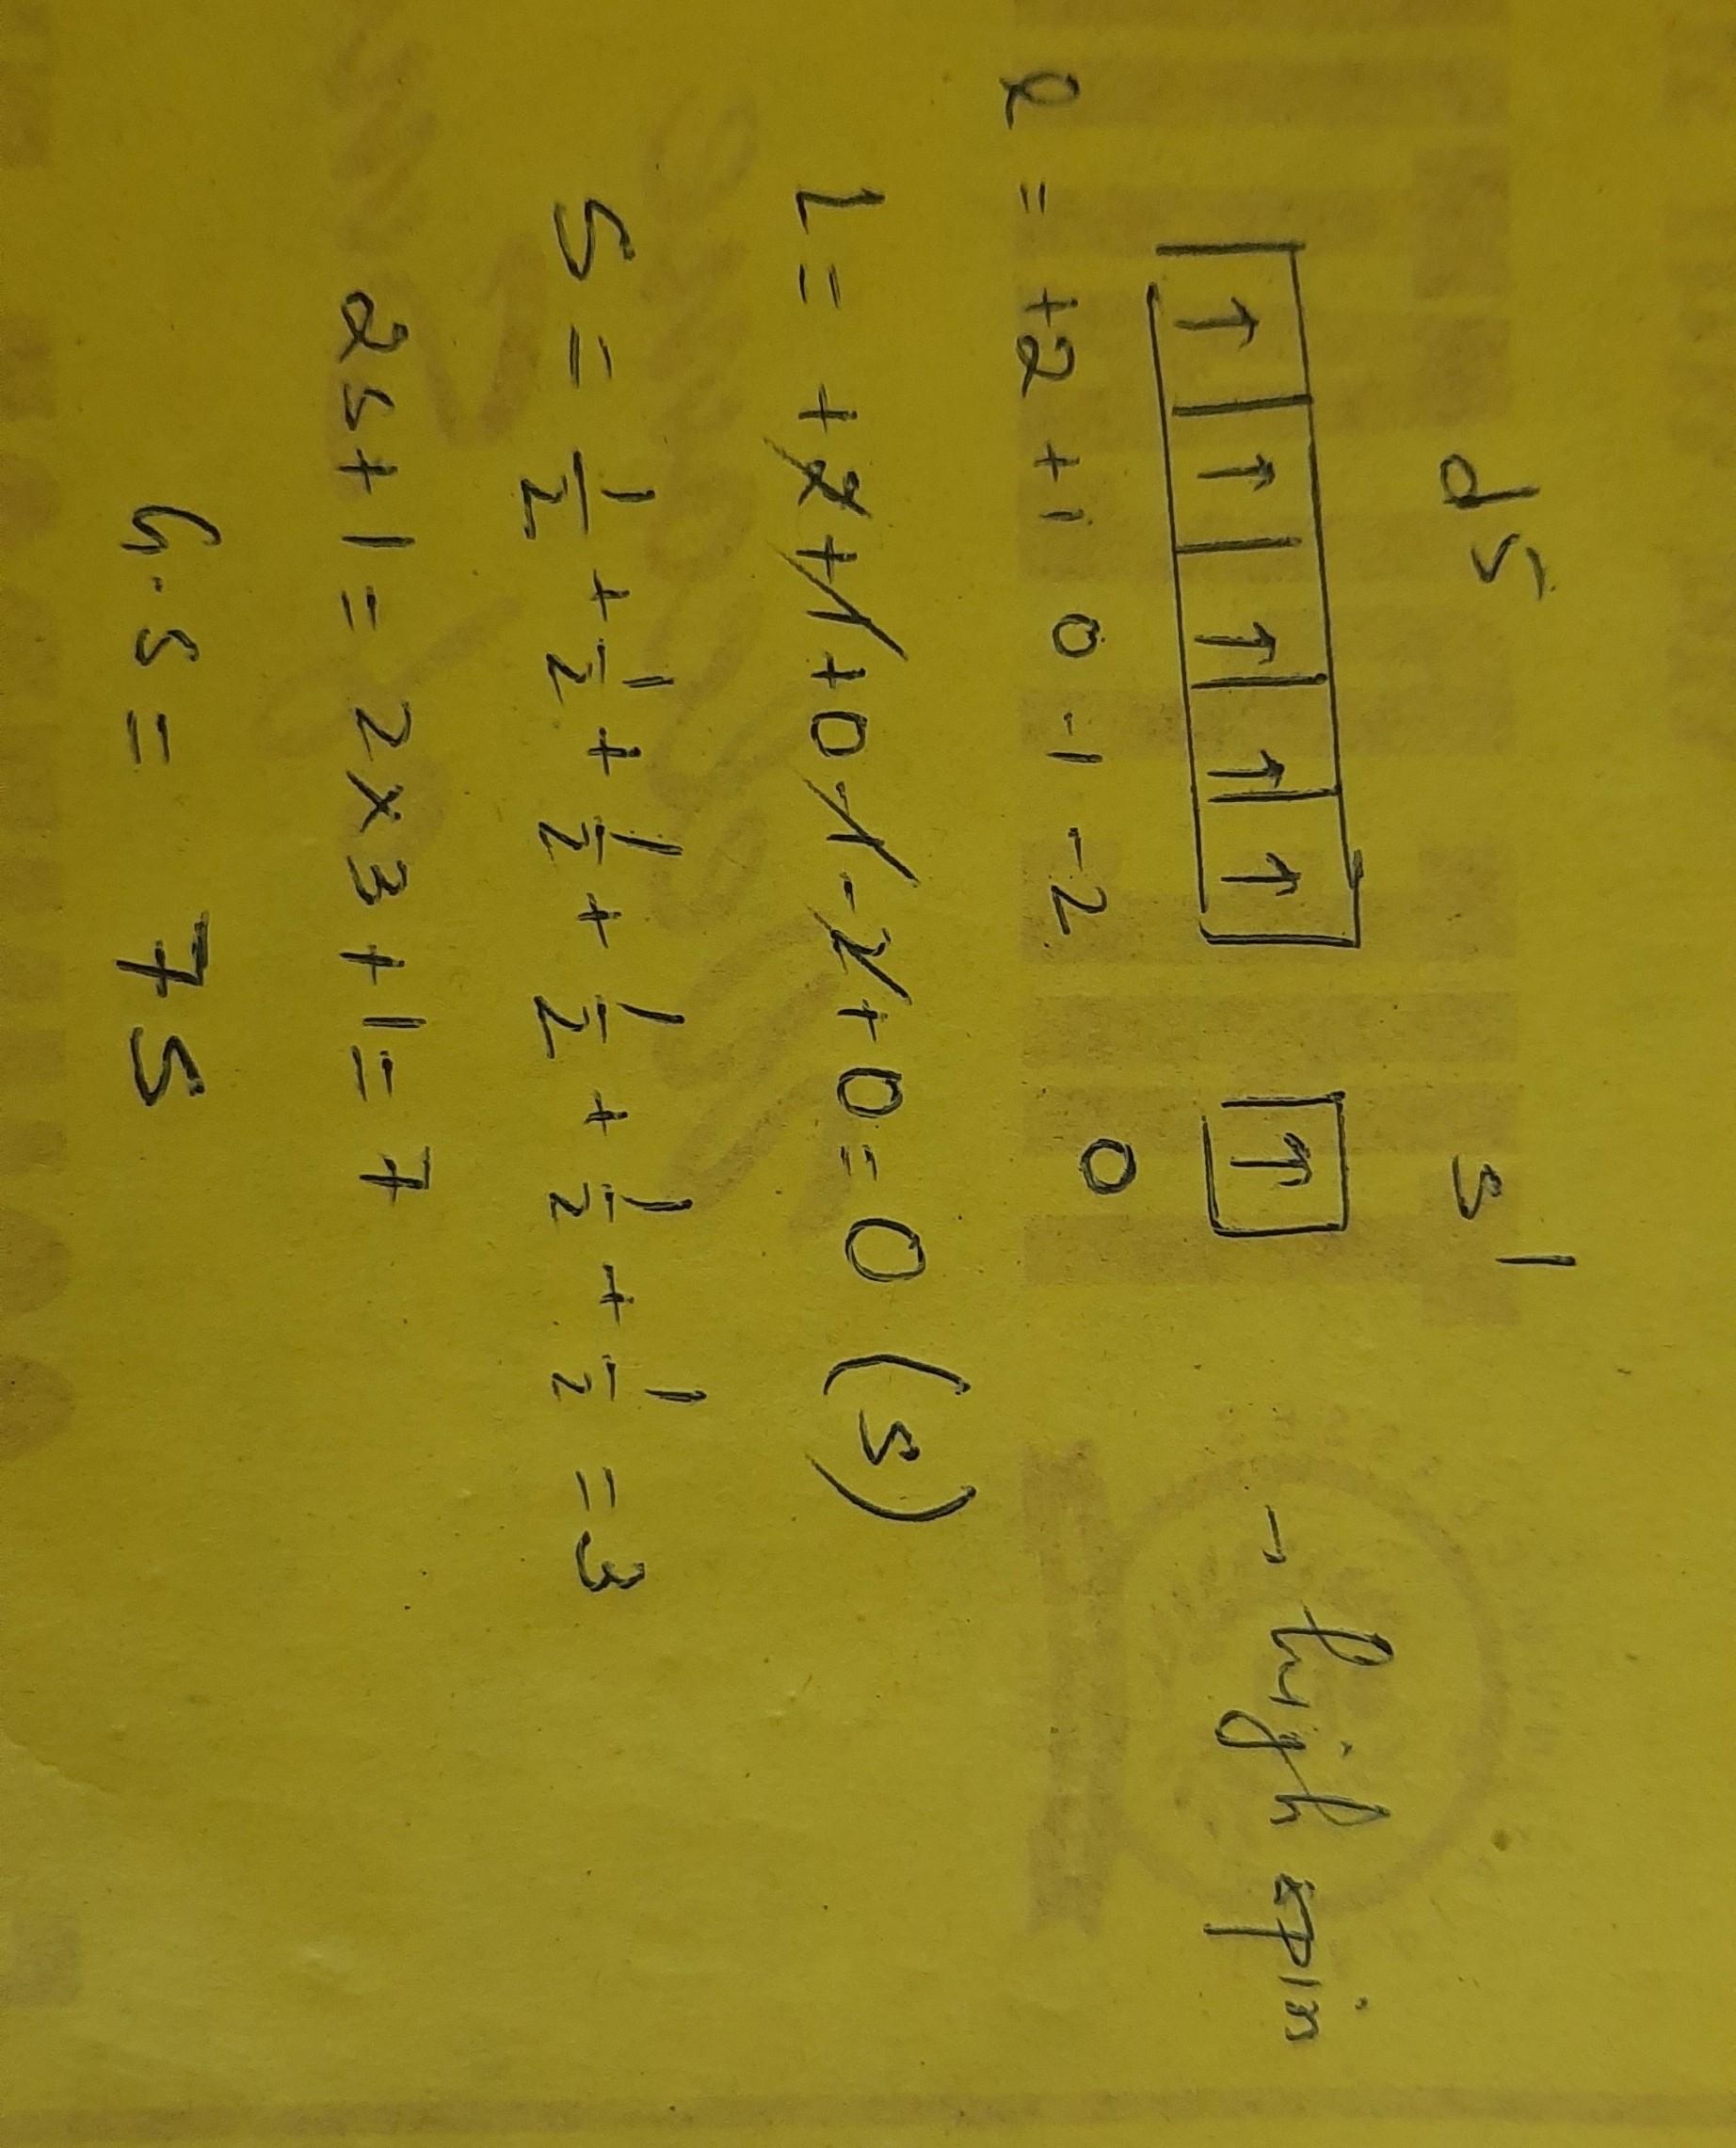 d5 s1
↑ ↑ ↑ ↑ ↑ ↑ - high spin
l = +2 +1 0 -1 -2 0
L = +2+1+0-1-2+0=0 (s)
S = 1/2 + 1/2 + 1/2 + 1/2 + 1/2 + 1/2 = 3
2s+1= 2x3+1=7
G.S = 7S